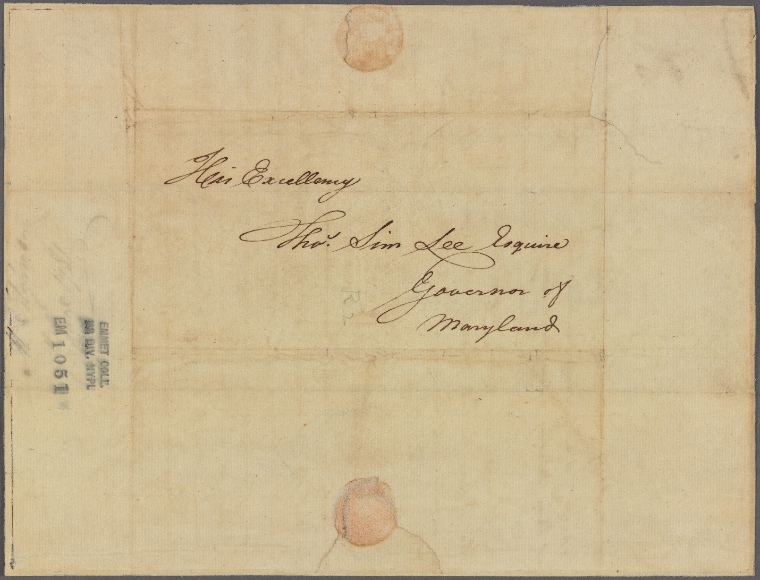 His Excellency
Thos. Sim Lee Esquire
Governor of
Maryland
EMMET COLL.
MS DIV. NYPL
EM 1051